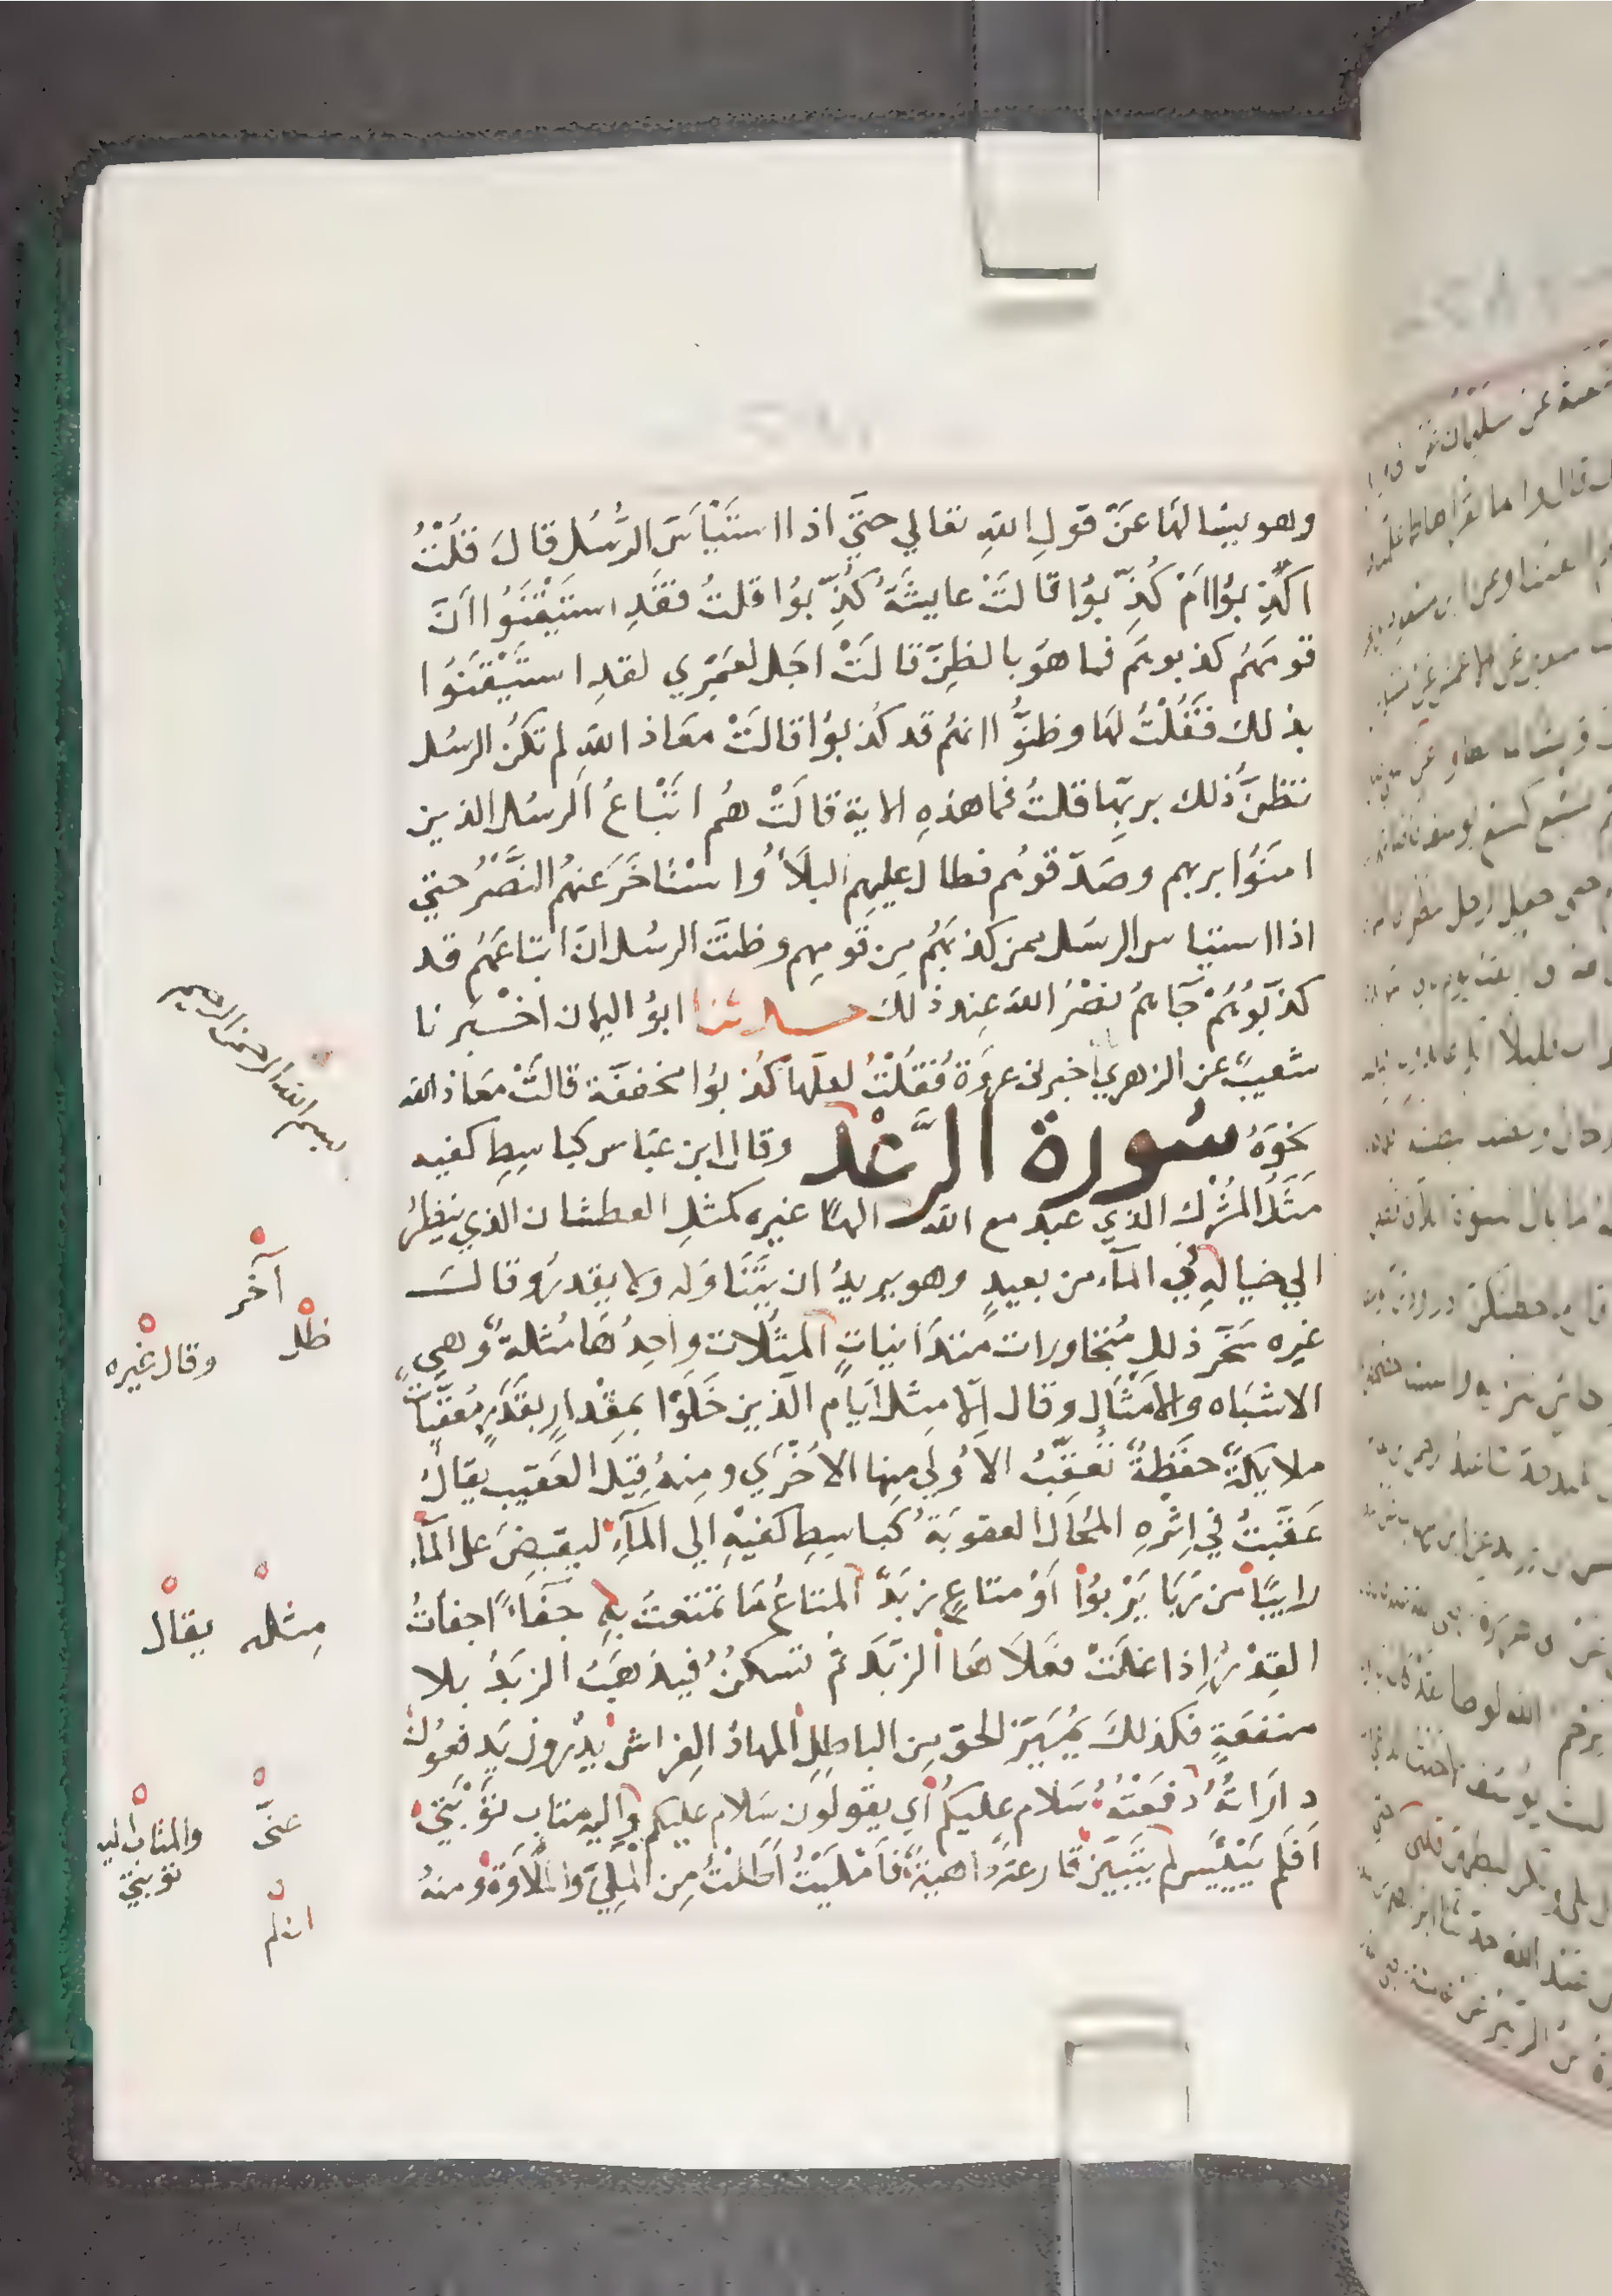 وهو يسالها عن قول الله تعالي حتي اذا استياس الرسل قال قلت
اكذبوا ام كذبوا قالت عايشة كذبوا قلت فقد استيقنوا ان
قومهم كذبوهم فما هو بالظن قالت اجل لعمري لقد استيقنوا
بذلك فقلت لها وظنوا انهم قد كذبوا قالت معاذ الله لم تكن الرسل
تظن ذلك بربها قلت فما هذه الاية قالت هم اتباع الرسل الذين
امنوا بربهم وصدقوهم فطال عليهم البلاء واستاخر عنهم النصر حتي
اذا استياس الرسل ممن كذبهم من قومهم وظنت الرسل ان اتباعهم قد
كذبوهم جآهم نصر الله عند ذلك حدثنا ابو اليمان اخبرنا
شعيب عن الزهري اخبرني عروة فقلت لعلها كذبوا مخففة قالت معاذ الله
نحوه سورة الرعد وقال ابن عباس كباسط كفيه
مثل المشرك الذي عبد مع الله الها غيره كمثل العطشان الذي ينظر
الي خياله في المآء من بعيد وهو يريد ان يتناوله ولا يقدر وقالــ
غيره سخر ذلل متجاورات متدانيات المثلات واحدها مثلة وهي
الاشباه والامثال وقال الا مثل ايام الذين خلوا بمقدار بقدر معقبات
ملايكة حفظة تعقب الاولي منها الاخري ومنه قيل العقيب يقال
عقبت في اثره المحال العقوبة كباسط كفيه الي المآء ليقبض على المآء
رابيا من ربا يربوا او متاع زبد المتاع ما تمتعت به جفاء اجفات
القدر اذا غلت فعلاها الزبد ثم تسكن فيذهب الزبد بلا
منفعة فكذلك يميز الحق من الباطل المهاد الفراش يدرون يدفعون
دراته دفعته سلام عليكم اي يقولون سلام عليكم واليه متاب توبتي
افلم ييئس لم يتبين قارعة داهية فامليت اطلت من الملي والملاوة ومنه
بسم الله الرحمن الرحيم
آخر
ظل
وقال غيره
مثله
يقال
عنى
والمتاب اليه
توبتي